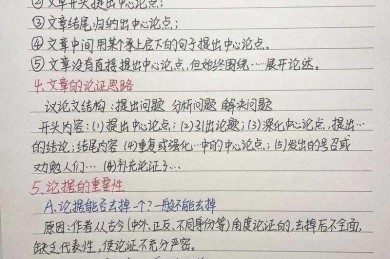 ②文章开头提出中心论点;
③文章结尾,归纳出中心论点;
④文章中间用某个承上启下的句子提出中心论点。
⑤文章没有直接提出中心论点,但始终围绕……展开论述。
4.文章的论证思路
议论文结构:提出问题 分析问题 解决问题
开头内容:(1)提出中心论点;(2)引出论题;(3)深化中心论点,提出…
的结论;结尾内容(4)重复或强化…中的中心论点;(5)发出的号召或
劝勉人们…(6)补充论证了…
5.论据的重要性
A.论据能否去掉一个?一般不能去掉
原因:作者从古今(中外、正反、不同身份等)角度论证的,去掉后不全面,
缺乏代表性,使论证不充分严密。